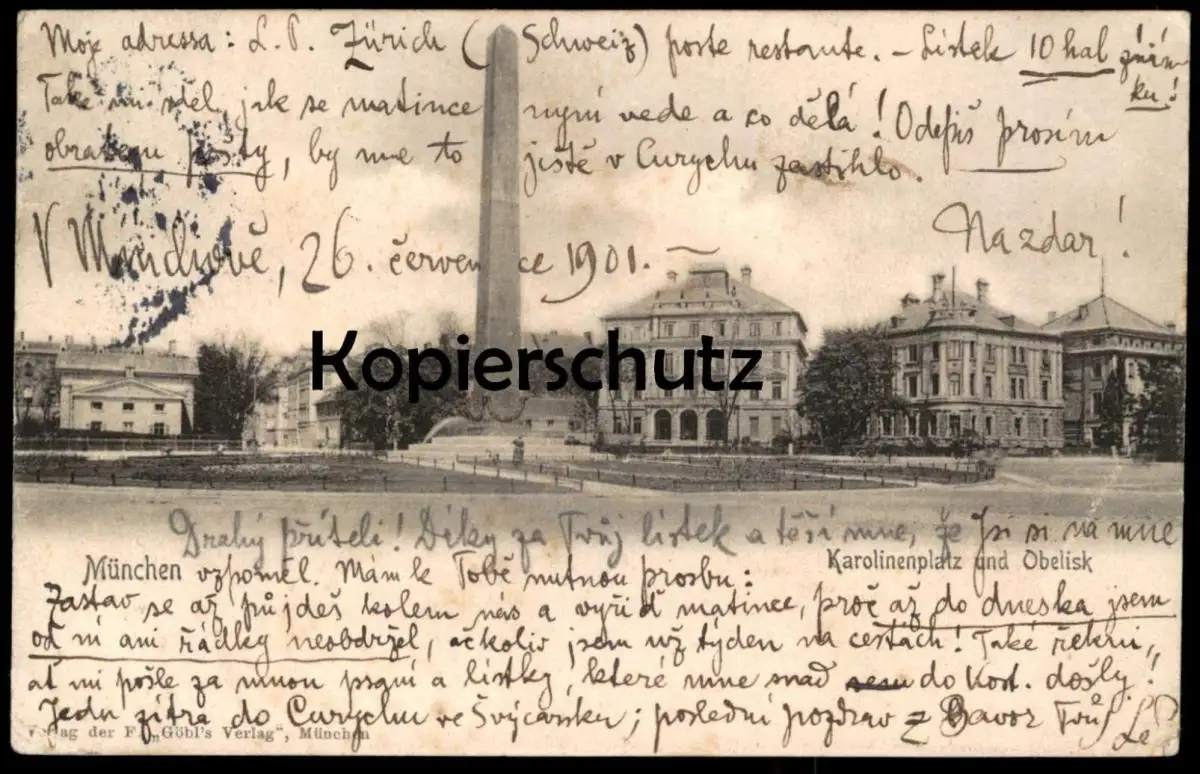 Moje adressa: L. P. Zürich (Schweiz) poste restante. – Lístek 10 hal známku!
Také mi sděl, jak se matince nyní vede a co dělá! Odepiš prosím
obratem pošty, by mne to ještě v Curychu zastihlo.
Nazdar!
V Mnichově, 26. července 1901. –
Kopierschutz
Drahý příteli! Díky za Tvůj lístek a těší mne, že Jsi si na mne
München vzpoměl. Mám k Tobě nutnou prosbu: Karolinenplatz und Obelisk
Zastav se až půjdeš kolem nás a vyřiď matince, proč až do dneska jsem
od ní ani řádky neobdržel, ačkoliv jsem už týden na cestách! Také řekni,
ať mi pošle za mnou psaní a lístky, které mne snad do Kost. došly!
Jedu zítra do Curychu ve Švýcarsku; poslední pozdrav z Bavor Tvůj
Verlag der F. „Göbl's Verlag", München